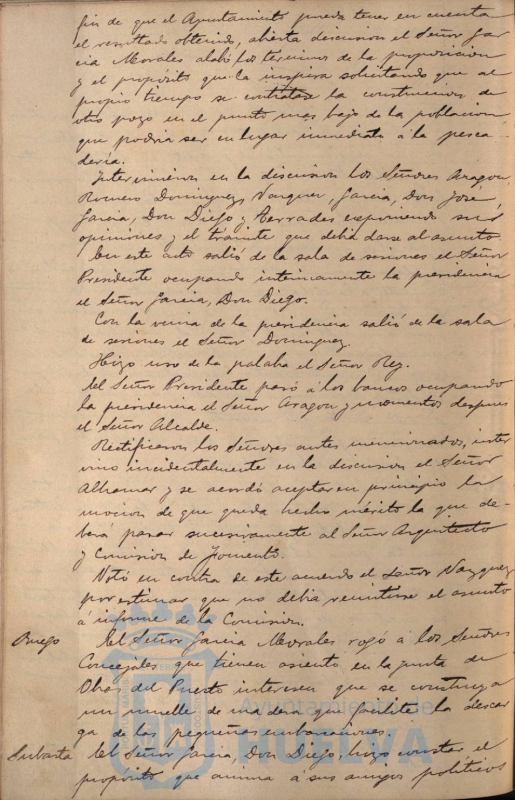 fin de que el Ayuntamiento pueda tener en cuenta
el resultado obtenido, abierta discusion el Señor Gar
cia Morales alabó los terminos de la proposicion
y el proposito que la inspira solicitando que al
propio tiempo se contratase la construccion de
otro pozo en el punto mas bajo de la poblacion,
que podria ser en lugar inmediato á la pesca-
deria.
Intervinieron en la discusion los Señores Aragon,
Romero Dominguez, Vazquez, Garcia, Don José,
Garcia, Don Diego y Terrades exponiendo sus
opiniones y el trámite que debia darse al asunto.
En este acto salió de la sala de sesiones el Señor
Presidente ocupando interinamente la presidencia
el Señor Garcia, Don Diego.
Con la venia de la presidencia salió de la sala
de sesiones el Señor Dominguez.
Hizo uso de la palabra el Señor Rey.
El Señor Presidente pasó á los bancos ocupando
la presidencia el Señor Aragon y momentos despues
el Señor Alcalde.
Rectificaron los Señores antes mencionados, inter
vino incidentalmente en la discusion el Señor
Alhamar y se acordó aceptar en principio la
mocion de que queda hecho mérito la que de-
berá pasar sucesivamente al Señor Arquitecto
y Comision de Fomento.
Votó en contra de este acuerdo el Señor Vazquez
por estimar que no debia remitirse el asunto
á informe de la Comision.
Ruego El Señor Garcia Morales rogó á los Señores
Concejales que tienen asiento en la Junta de
Obras del Puerto interesen que se construya
un muelle de madera que facilite la descar
ga de las pequeñas embarcaciones.
Subasta El Señor Garcia, Don Diego, hizo constar el
proposito que anima á sus amigos politicos
Ayuntamiento de
HUELVA